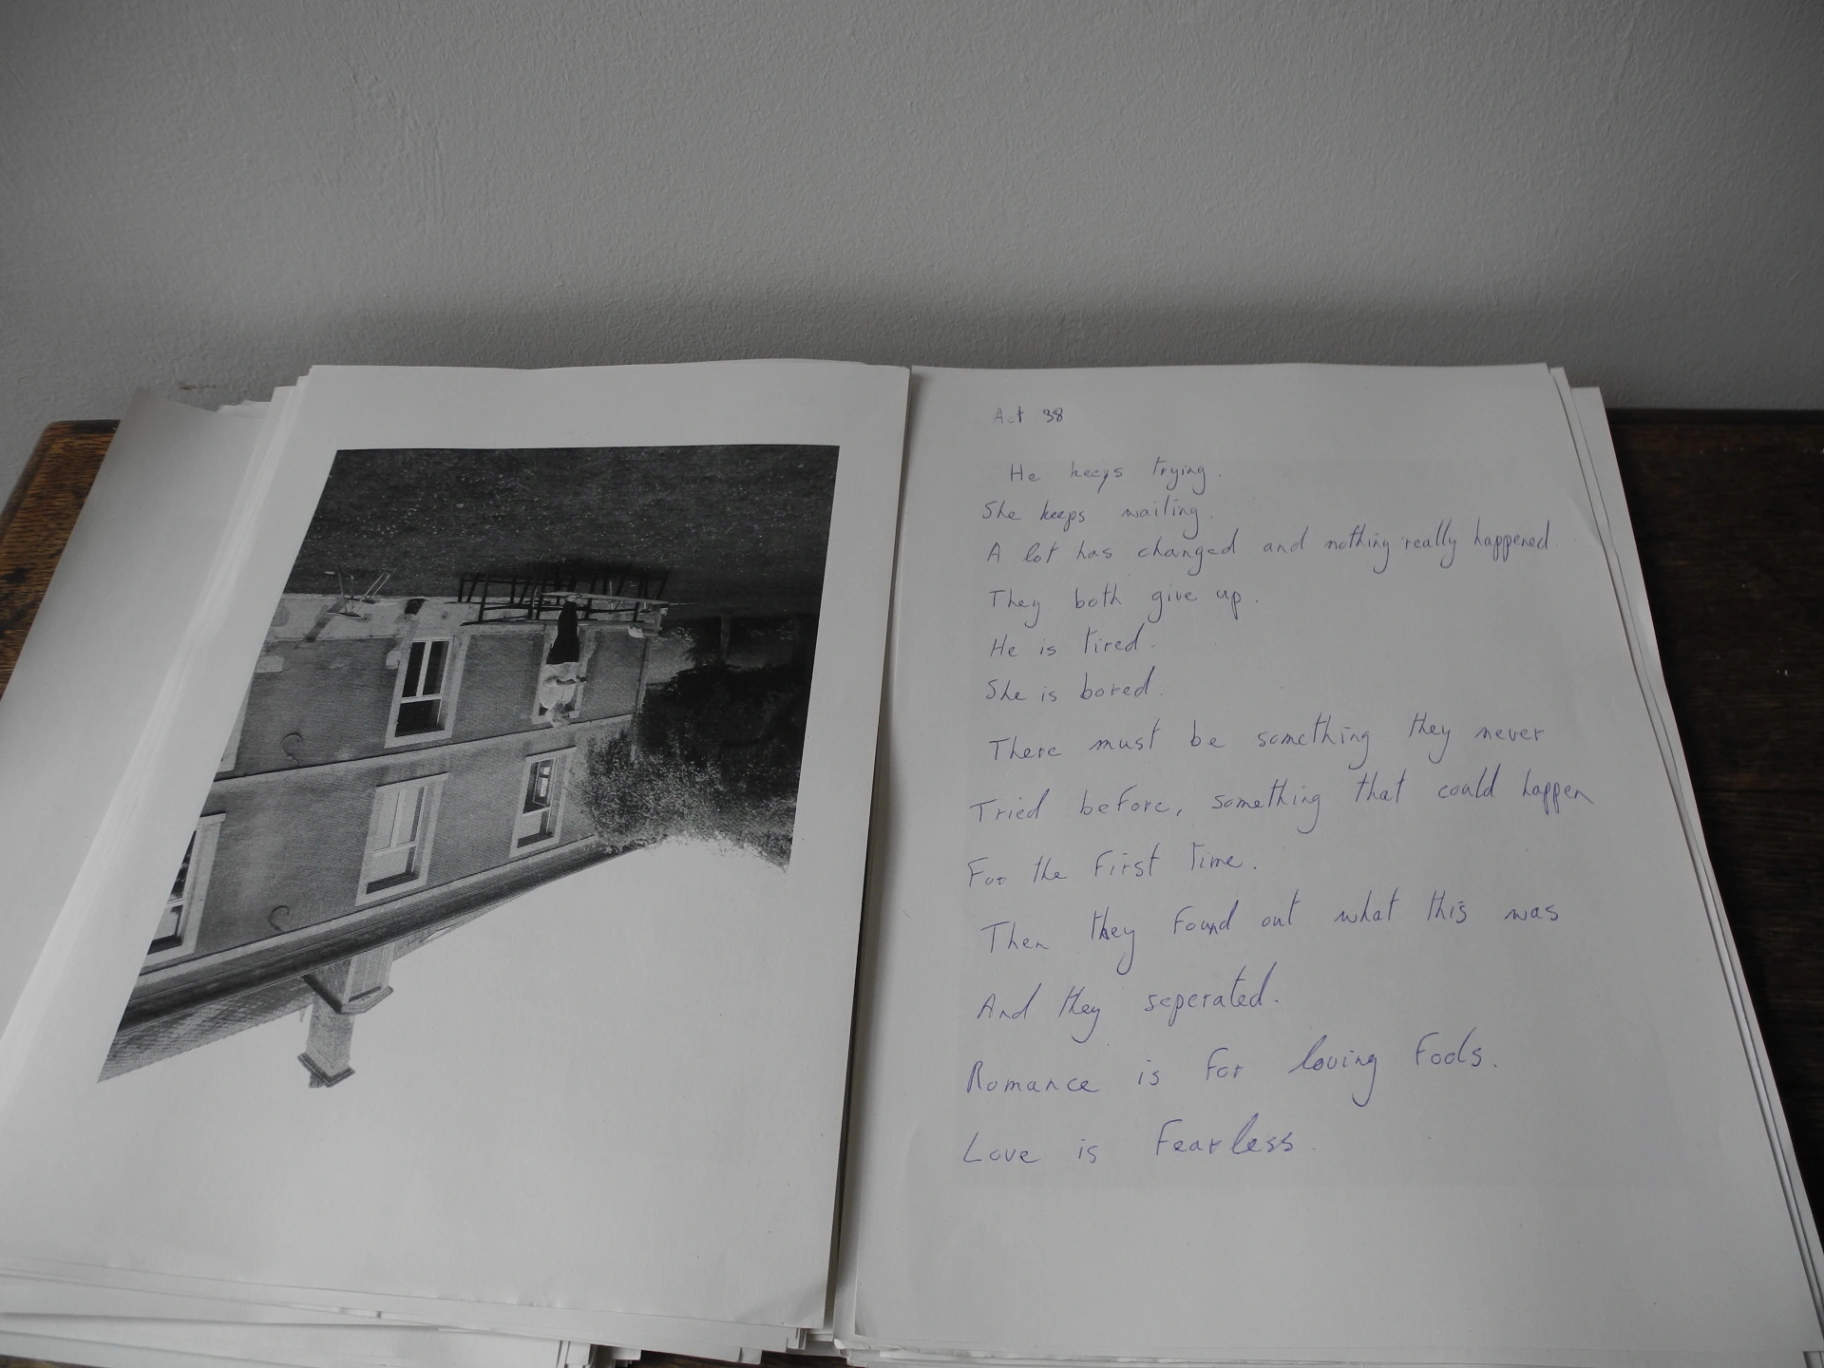 Act 38
He keeps trying.
She keeps waiting.
A lot has changed and nothing really happened.
They both give up.
He is tired.
She is bored.
There must be something they never
Tried before, something that could happen
For the First time.
Then they found out what this was
And they seperated.
Romance is For loving Fools.
Love is Fearless.